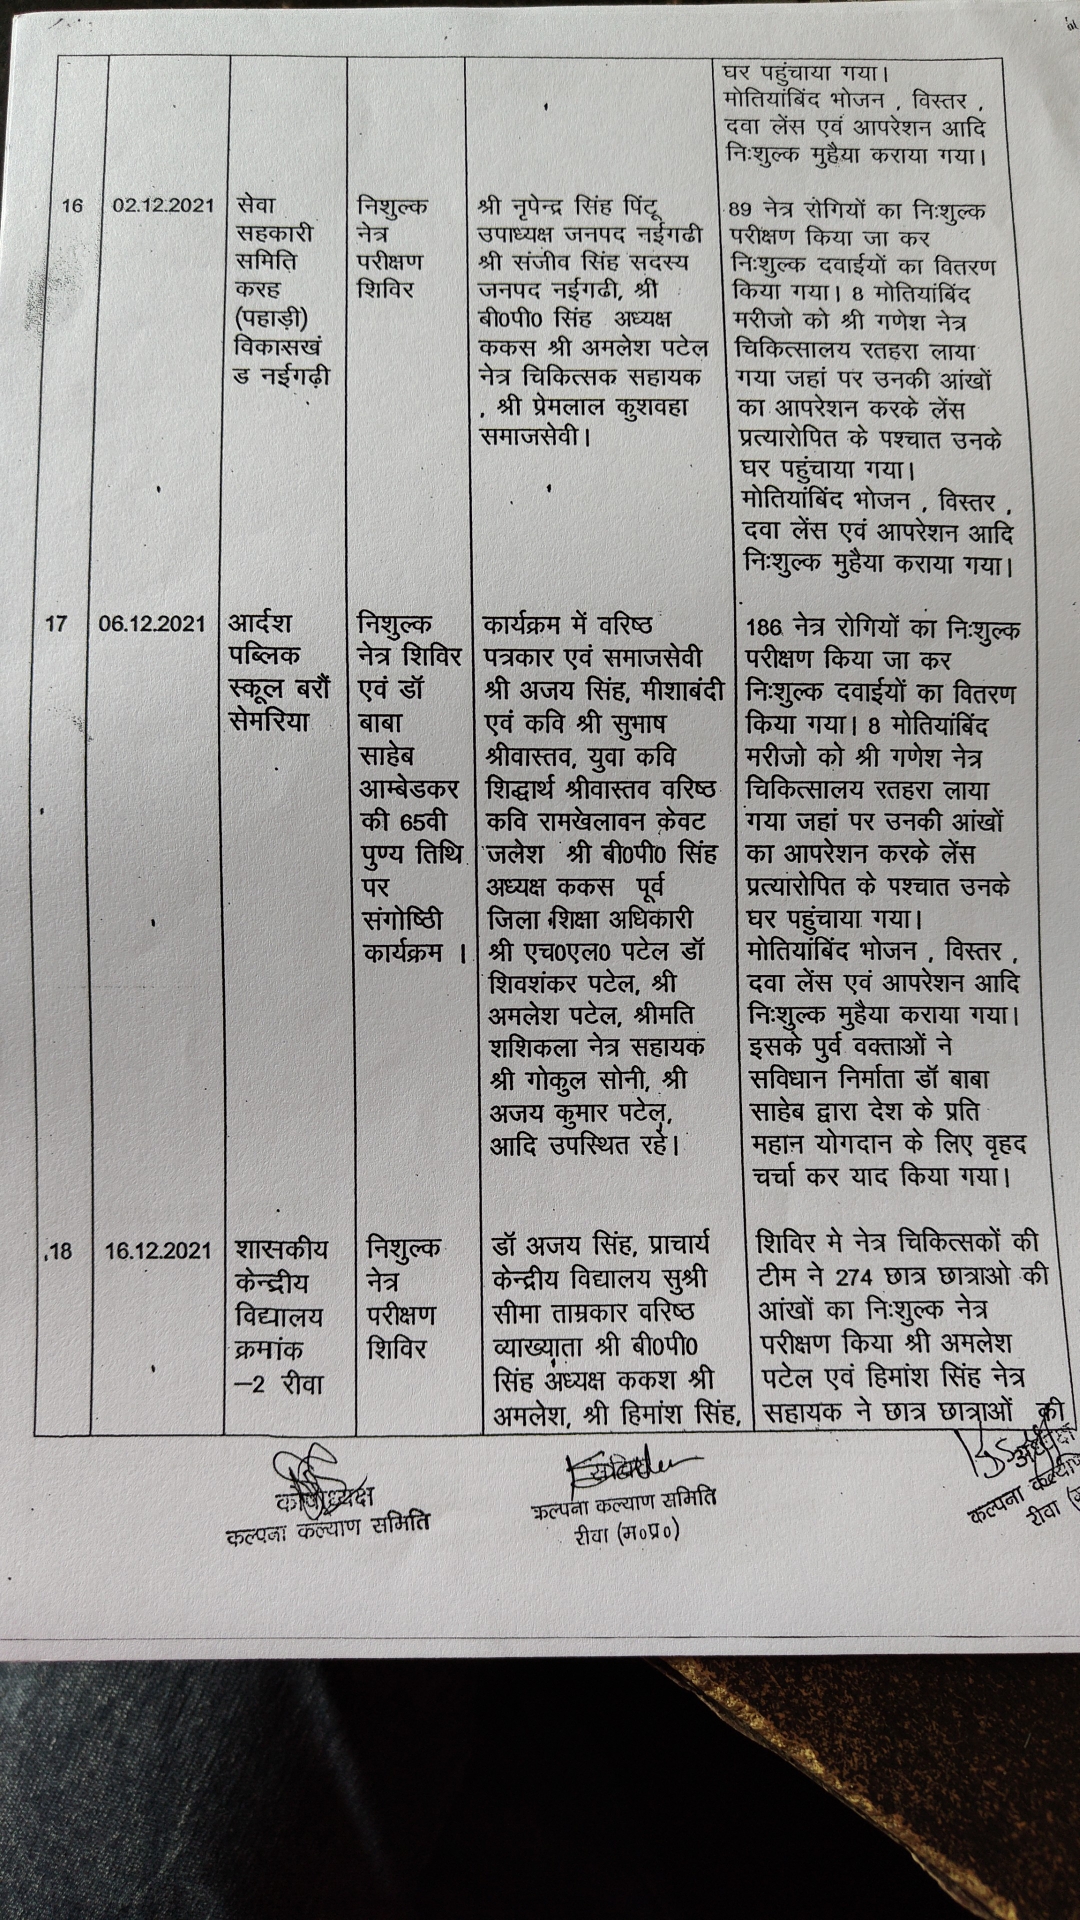 घर पहुंचाया गया।
मोतियांबिंद भोजन , विस्तर ,
दवा लेंस एवं आपरेशन आदि
निःशुल्क मुहैया कराया गया।
16
02.12.2021
सेवा
सहकारी
समिति
करह
(पहाड़ी)
विकासखं
ड नईगढ़ी
निशुल्क
नेत्र
परीक्षण
शिविर
श्री नृपेन्द्र सिंह पिंटू
उपाध्यक्ष जनपद नईगढी
श्री संजीव सिंह सदस्य
जनपद नईगढी, श्री
बी0पी0 सिंह अध्यक्ष
ककस श्री अमलेश पटेल
नेत्र चिकित्सक सहायक
, श्री प्रेमलाल कुशवहा
समाजसेवी।
89 नेत्र रोगियों का निःशुल्क
परीक्षण किया जा कर
निःशुल्क दवाईयों का वितरण
किया गया। 8 मोतियांबिंद
मरीजो को श्री गणेश नेत्र
चिकित्सालय रतहरा लाया
गया जहां पर उनकी आंखों
का आपरेशन करके लेंस
प्रत्यारोपित के पश्चात उनके
घर पहुंचाया गया।
मोतियांबिंद भोजन , विस्तर ,
दवा लेंस एवं आपरेशन आदि
निःशुल्क मुहैया कराया गया।
17
06.12.2021
आर्दश
पब्लिक
स्कूल बरौं
सेमरिया
निशुल्क
नेत्र शिविर
एवं डॉ
बाबा
साहेब
आम्बेडकर
की 65वी
पुण्य तिथि
पर
संगोष्ठिी
कार्यक्रम ।
कार्यक्रम में वरिष्ठ
पत्रकार एवं समाजसेवी
श्री अजय सिंह, मीशाबंदी
एवं कवि श्री सुभाष
श्रीवास्तव, युवा कवि
शिद्धार्थ श्रीवास्तव वरिष्ठ
कवि रामखेलावन केवट
जलेश श्री बी0पी0 सिंह
अध्यक्ष ककस पूर्व
जिला शिक्षा अधिकारी
श्री एच0एल0 पटेल डॉ
शिवशंकर पटेल, श्री
अमलेश पटेल, श्रीमति
शशिकला नेत्र सहायक
श्री गोकुल सोनी, श्री
अजय कुमार पटेल,
आदि उपस्थित रहे।
186 नेत्र रोगियों का निःशुल्क
परीक्षण किया जा कर
निःशुल्क दवाईयों का वितरण
किया गया। 8 मोतियांबिंद
मरीजो को श्री गणेश नेत्र
चिकित्सालय रतहरा लाया
गया जहां पर उनकी आंखों
का आपरेशन करके लेंस
प्रत्यारोपित के पश्चात उनके
घर पहुंचाया गया।
मोतियांबिंद भोजन , विस्तर ,
दवा लेंस एवं आपरेशन आदि
निःशुल्क मुहैया कराया गया।
इसके पुर्व वक्ताओं ने
सविधान निर्माता डॉ बाबा
साहेब द्वारा देश के प्रति
महान योगदान के लिए वृहद
चर्चा कर याद किया गया।
18
16.12.2021
शासकीय
केन्द्रीय
विद्यालय
क्रमांक
–2 रीवा
निशुल्क
नेत्र
परीक्षण
शिविर
डॉ अजय सिंह, प्राचार्य
केन्द्रीय विद्यालय सुश्री
सीमा ताम्रकार वरिष्ठ
व्याख्याता श्री बी0पी0
सिंह अध्यक्ष ककश श्री
अमलेश, श्री हिमांश सिंह,
शिविर मे नेत्र चिकित्सकों की
टीम ने 274 छात्र छात्राओ की
आंखों का निःशुल्क नेत्र
परीक्षण किया श्री अमलेश
पटेल एवं हिमांश सिंह नेत्र
सहायक ने छात्र छात्राओं की
कोषाध्यक्ष
कल्पना कल्याण समिति
कल्पना कल्याण समिति
रीवा (म०प्र०)
अध्यक्ष
कल्पना
रीवा